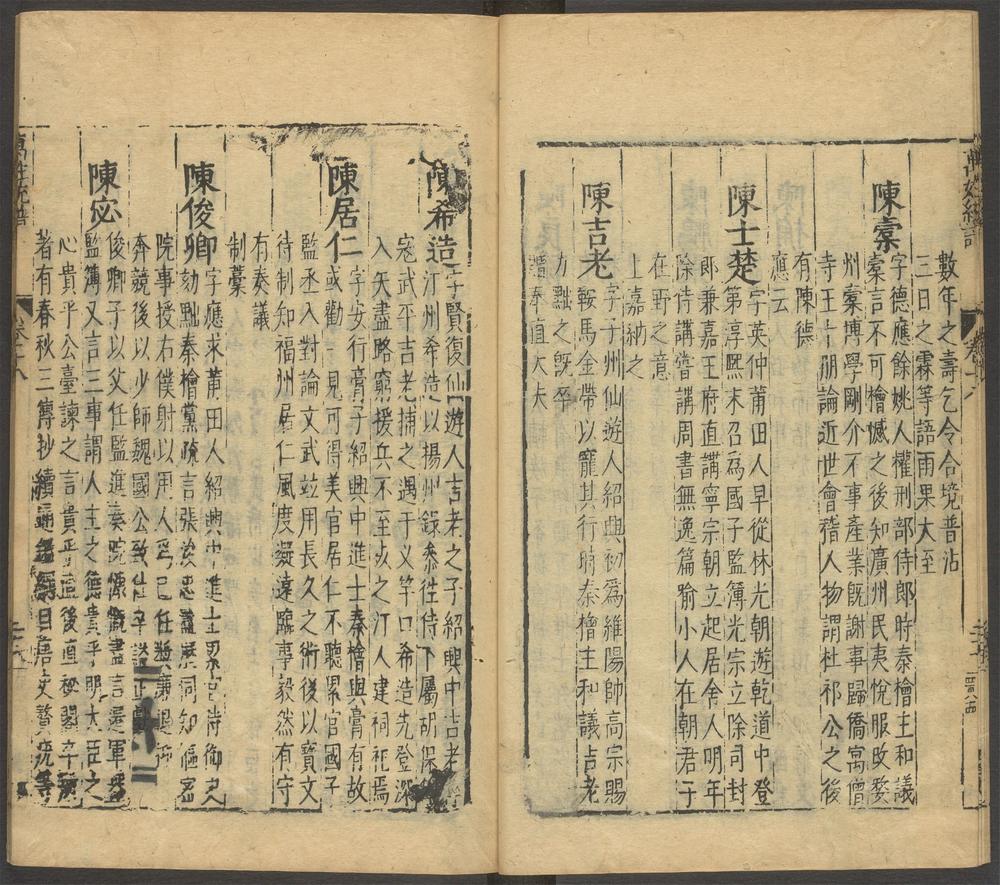 數年之壽乞令合境普沾
三日之霖等語雨果大至
陳橐
字德應餘姚人權刑部侍郎時泰檜主和議
橐言不可檜憾之後知廣州民夷悅服改婺
州橐博學剛介不事產業既謝事歸僑寓僧
寺王十朋論近世會稽人物謂杜祁公之後
有陳德
應云
陳士楚
字英仲莆田人早從林光朝遊乾道中登
第淳熙末召爲國子監簿光宗立除司封
郎兼嘉王府直講寧宗朝立起居舍人明年
除侍講嘗講周書無逸篇喻小人在朝君子
在野之意
上嘉納之
陳吉老
字子州仙遊人紹興初爲維陽帥高宗賜
鞍馬金帶以寵其行時秦檜主和議吉老
力黜之既卒
贈奉直大夫
陳希造
字賢復仙遊人吉老之子紹興中吉老
寇武平吉老捕之遇于义竿口希造先登深
入矢盡路窮援兵不至死之汀人建祠祀焉
汀州希造以揚州錄叅徃侍下屬胡
陳居仁
字安行膏子紹興中進士秦檜與膏有故
或勸一見可得美官居仁不聽累官國子
監丞入對論文武竝用長久之術後以寶文
待制知福州居仁風度凝遠臨事毅然有守
有奏議
制藁
陳俊卿
字應求莆田人紹興中進士累官侍御史
劾黜秦檜黨疏言張浚忠藎累同知樞密
院事授右僕射以用人爲己任獎廉退抑
奔競後以少師魏國公致仕卒謚正獻
陳宓
俊卿子以父任監進奏院慷慨盡言遷軍器
監簿又言三事謂人主之德貴乎明大臣之
心貴乎公臺諫之言貴乎直後直秘閣卒
著有春秋三傳抄續通鑑綱目唐文贅疣等